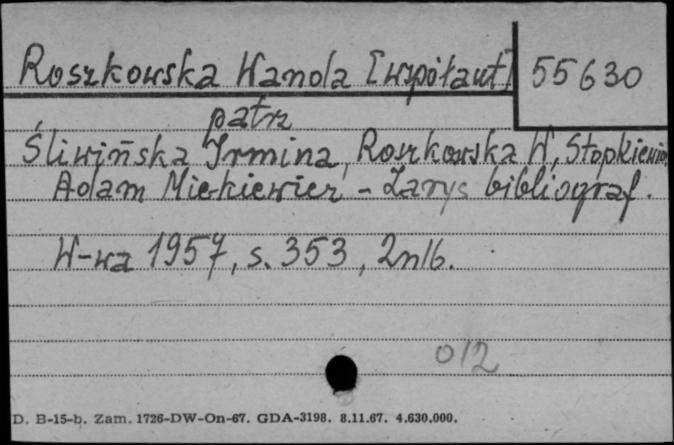 Roszkowska Wanda [współaut] 55630
patrz
Śliwińska Irmina, Roszkowska W, Stopkiewicz
Adam Mickiewicz - Zarys bibliograf.
W-wa 1957, s. 353, 2nlb.
012
D. B-15-b. Zam. 1726-DW-On-67. GDA-3198. 8.11.67. 4.630.000.